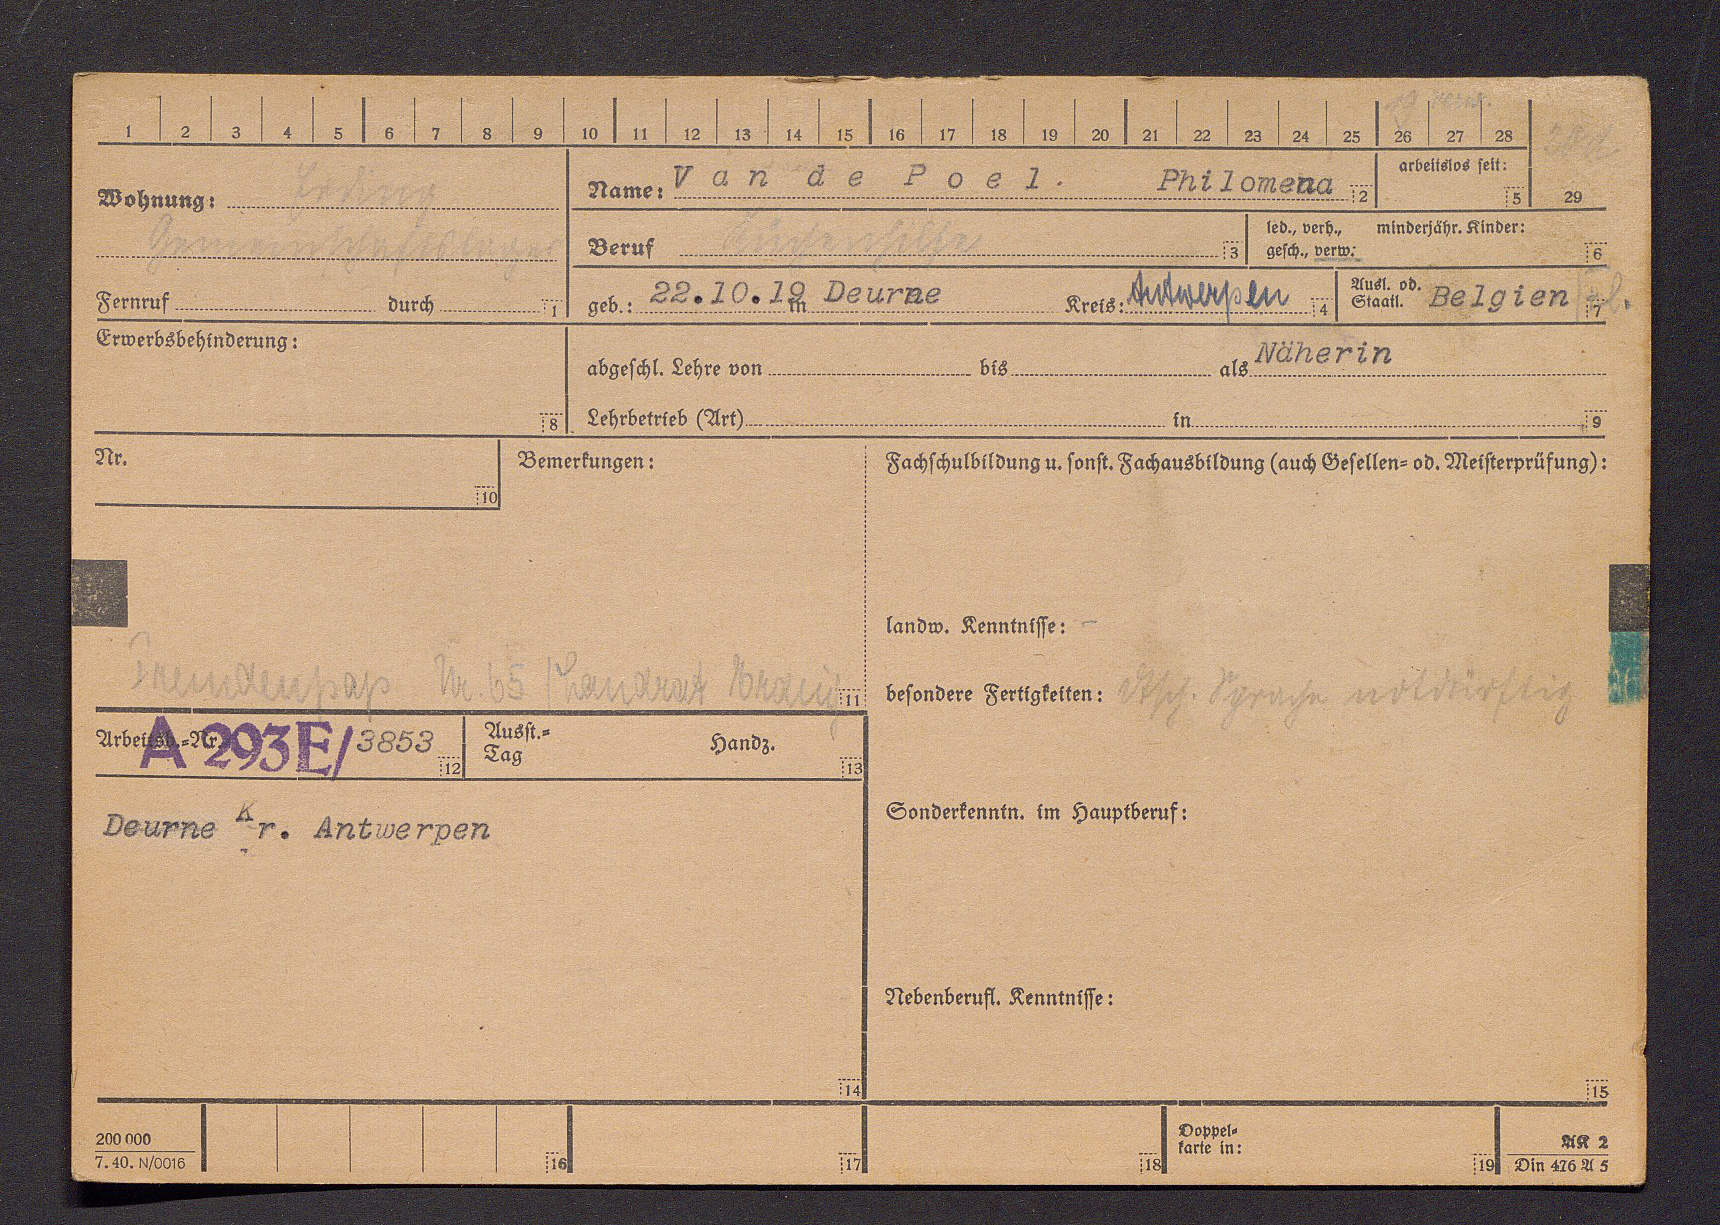 1 2 3 4 5 6 7 8 9 10 11 12 13 14 15 16 17 18 19 20 21 22 23 24 25 26 27 28
Wohnung:
Gemeinschaftslager
Fernruf durch 1
Name: Van de Poel. Philomena 2
arbeitslos seit: 5
29
Beruf Küchenhilfe 3
led., verh., minderjähr. Kinder:
gesch., verw. 6
geb.: 22.10.19 in Deurne Kreis: Antwerpen 4
Ausl. od.
Staatl. Belgien 7
Erwerbsbehinderung:
8
abgeschl. Lehre von bis als Näherin
Lehrbetrieb (Art) in 9
Nr.
10
Bemerkungen:
Fremdenpaß Nr. 65 Landrat Erding 11
Fachschulbildung u. sonst. Fachausbildung (auch Gesellen- od. Meisterprüfung):
landw. Kenntnisse: -
besondere Fertigkeiten: dtsch. Sprache notdürftig
Arbeitsb.-Nr. A 293E/3853 12
Ausst.- Handz.
Tag 13
Deurne Kr. Antwerpen
14
Sonderkenntn. im Hauptberuf:
Nebenberufl. Kenntnisse:
15
200 000
7. 40. N/0016
16
17
18
Doppel-
karte in: 19
AK 2
Din 476 A 5